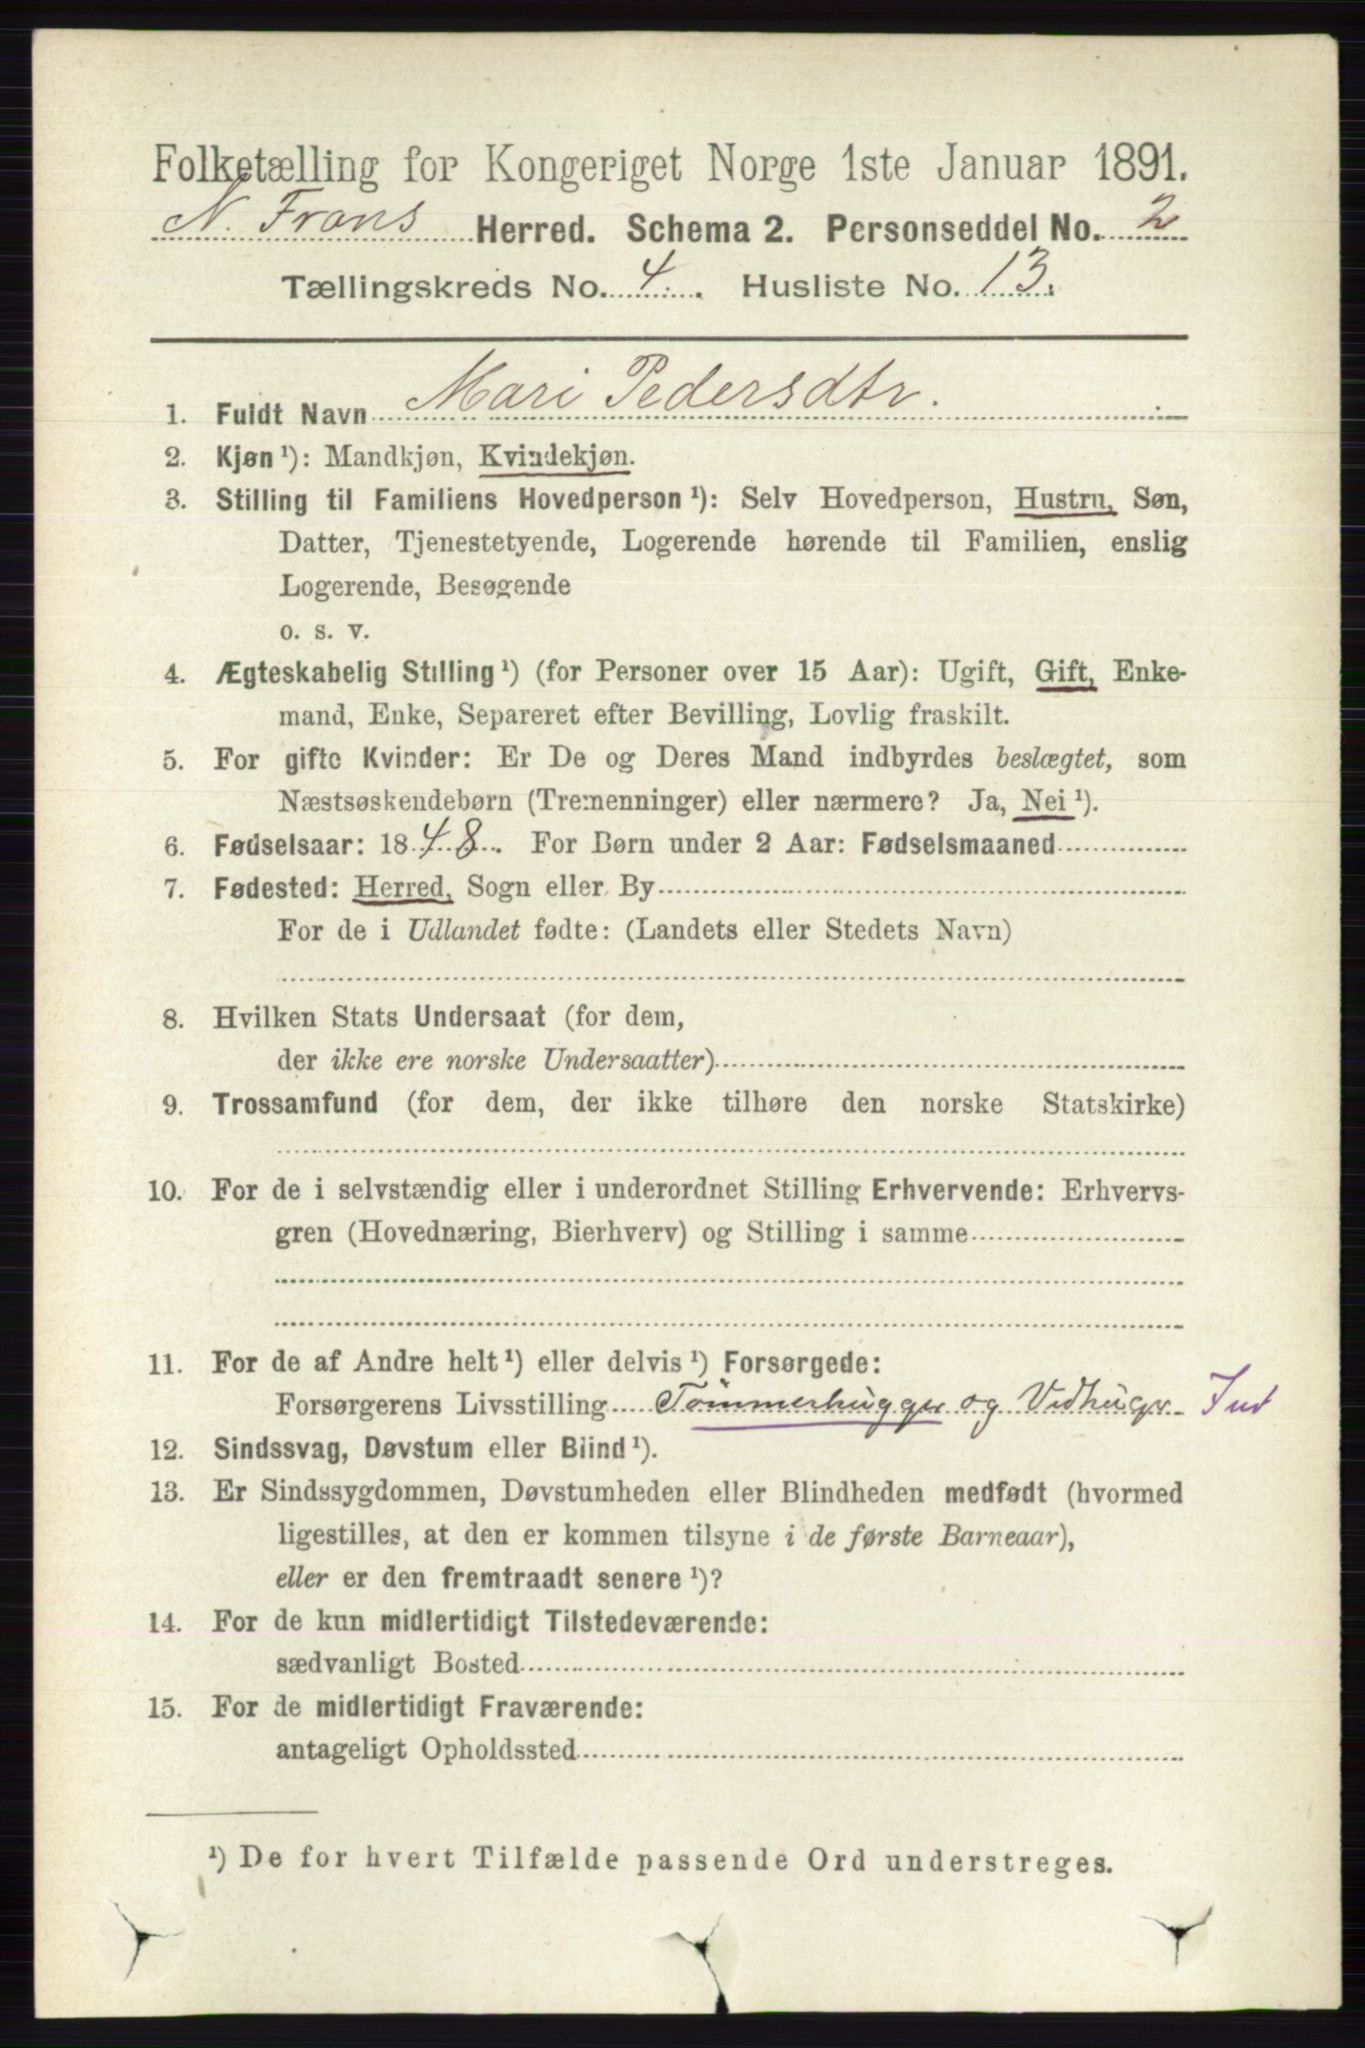 Folketælling for Kongeriget Norge 1ste Januar 1891.
N. Frons Herred. Schema 2. Personseddel No. 2
Tællingskreds No. 4. Husliste No. 13.
1. Fuldt Navn Mari Pedersdtr.
2. Kjøn ¹): Mandkjøn, Kvindekjøn.
3. Stilling til Familiens Hovedperson ¹): Selv Hovedperson, Hustru, Søn,
Datter, Tjenestetyende, Logerende hørende til Familien, enslig
Logerende, Besøgende
o. s. v.
4. Ægteskabelig Stilling ¹) (for Personer over 15 Aar): Ugift, Gift, Enke-
mand, Enke, Separeret efter Bevilling, Lovlig fraskilt.
5. For gifte Kvinder: Er De og Deres Mand indbyrdes beslægtet, som
Næstsøskendebørn (Tremenninger) eller nærmere? Ja, Nei ¹).
6. Fødselsaar: 1848. For Børn under 2 Aar: Fødselsmaaned
7. Fødested: Herred, Sogn eller By
For de i Udlandet fødte: (Landets eller Stedets Navn)
8. Hvilken Stats Undersaat (for dem,
der ikke ere norske Undersaatter)
9. Trossamfund (for dem, der ikke tilhøre den norske Statskirke)
10. For de i selvstændig eller i underordnet Stilling Erhvervende: Erhvervs-
gren (Hovednæring, Bierhverv) og Stilling i samme
11. For de af Andre helt ¹) eller delvis ¹) Forsørgede:
Forsørgerens Livsstilling Tømmerhugger og Vedhugr.
12. Sindssvag, Døvstum eller Blind ¹).
13. Er Sindssygdommen, Døvstumheden eller Blindheden medfødt (hvormed
ligestilles, at den er kommen tilsyne i de første Barneaar),
eller er den fremtraadt senere ¹)?
14. For de kun midlertidigt Tilstedeværende:
sædvanligt Bosted
15. For de midlertidigt Fraværende:
antageligt Opholdssted
¹) De for hvert Tilfælde passende Ord understreges.